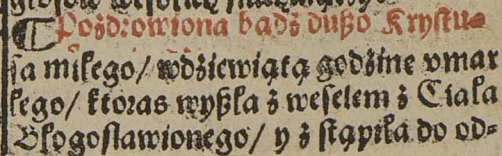 Pozdrowiona bądź dußo Krystu⸗
sa miłego/ wdziewiątą godzinę vmar
łego/ ktoraś wyßła z weselem z Ciała
Błogosławionego/ y z stąpiła do od⸗